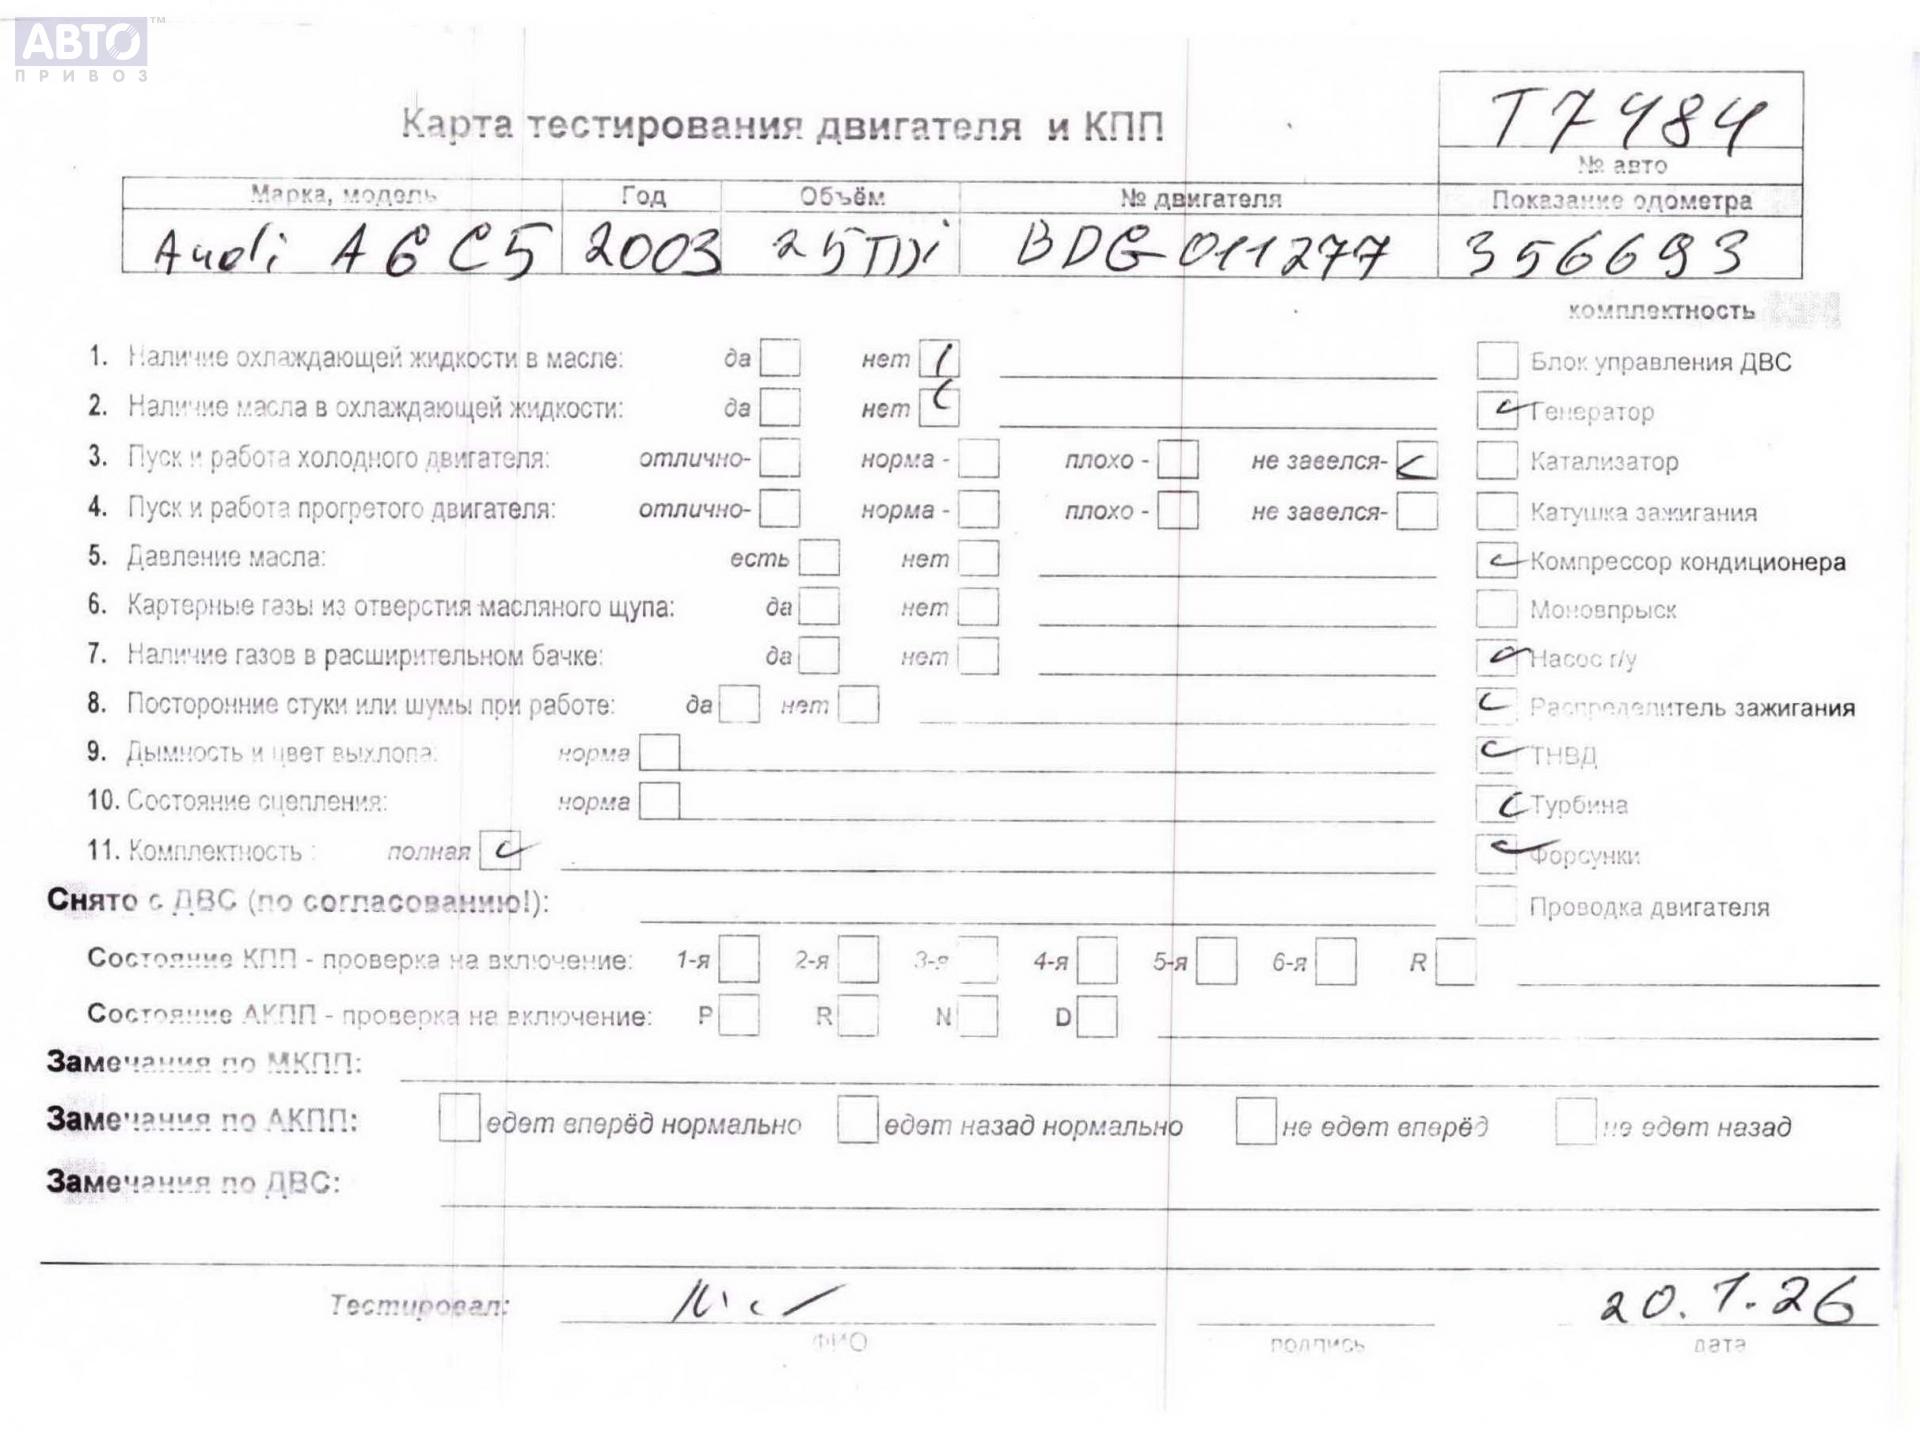 АВТО™
ПРИВОЗ
Карта тестирования двигателя и КПП
T7484
№ авто
Марка, модель Год Объём № двигателя Показание одометра
Audi A6 C5 2003 25TDi BDG011277 356693
комплектность
1. Наличие охлаждающей жидкости в масле: да нет
Блок управления ДВС
2. Наличие масла в охлаждающей жидкости: да нет
Генератор
3. Пуск и работа холодного двигателя: отлично- норма - плохо - не завелся-
Катализатор
4. Пуск и работа прогретого двигателя: отлично- норма - плохо - не завелся-
Катушка зажигания
5. Давление масла: есть нет
Компрессор кондиционера
6. Картерные газы из отверстия масляного щупа: да нет
Моновпрыск
7. Наличие газов в расширительном бачке: да нет
Насос г/у
8. Посторонние стуки или шумы при работе: да нет
Распределитель зажигания
9. Дымность и цвет выхлопа: норма
ТНВД
10. Состояние сцепления: норма
Турбина
11. Комплектность : полная
Форсунки
Снято с ДВС (по согласованию!):
Проводка двигателя
Состояние КПП - проверка на включение: 1-я 2-я 3-я 4-я 5-я 6-я R
Состояние АКПП - проверка на включение: P R N D
Замечания по МКПП:
Замечания по АКПП: едет вперёд нормально едет назад нормально не едет вперёд не едет назад
Замечания по ДВС:
Тестировал: 20.1.26
ФИО подпись дата